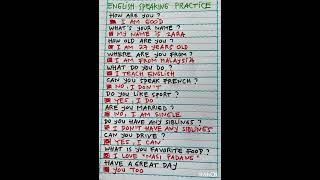 ENGLISH SPEAKING PRACTICE
HOW ARE YOU ?
I AM GOOD
WHAT'S YOUR NAME ?
MY NAME IS ZARA
HOW OLD ARE YOU ?
I AM 27 YEARS OLD
WHERE ARE YOU FROM ?
I AM FROM MALAYSIA
WHAT DO YOU DO ?
I TEACH ENGLISH
CAN YOU SPEAK FRENCH ?
NO, I DON'T
DO YOU LIKE SPORT ?
YES, I DO
ARE YOU MARRIED ?
NO, I AM SINGLE
DO YOU HAVE ANY SIBLINGS ?
I DON'T HAVE ANY SIBLINGS
CAN YOU DRIVE ?
YES, I CAN
WHAT IS YOUR FAVORITE FOOD ?
I LOVE "NASI PADANG"
HAVE A GREAT DAY
YOU TOO